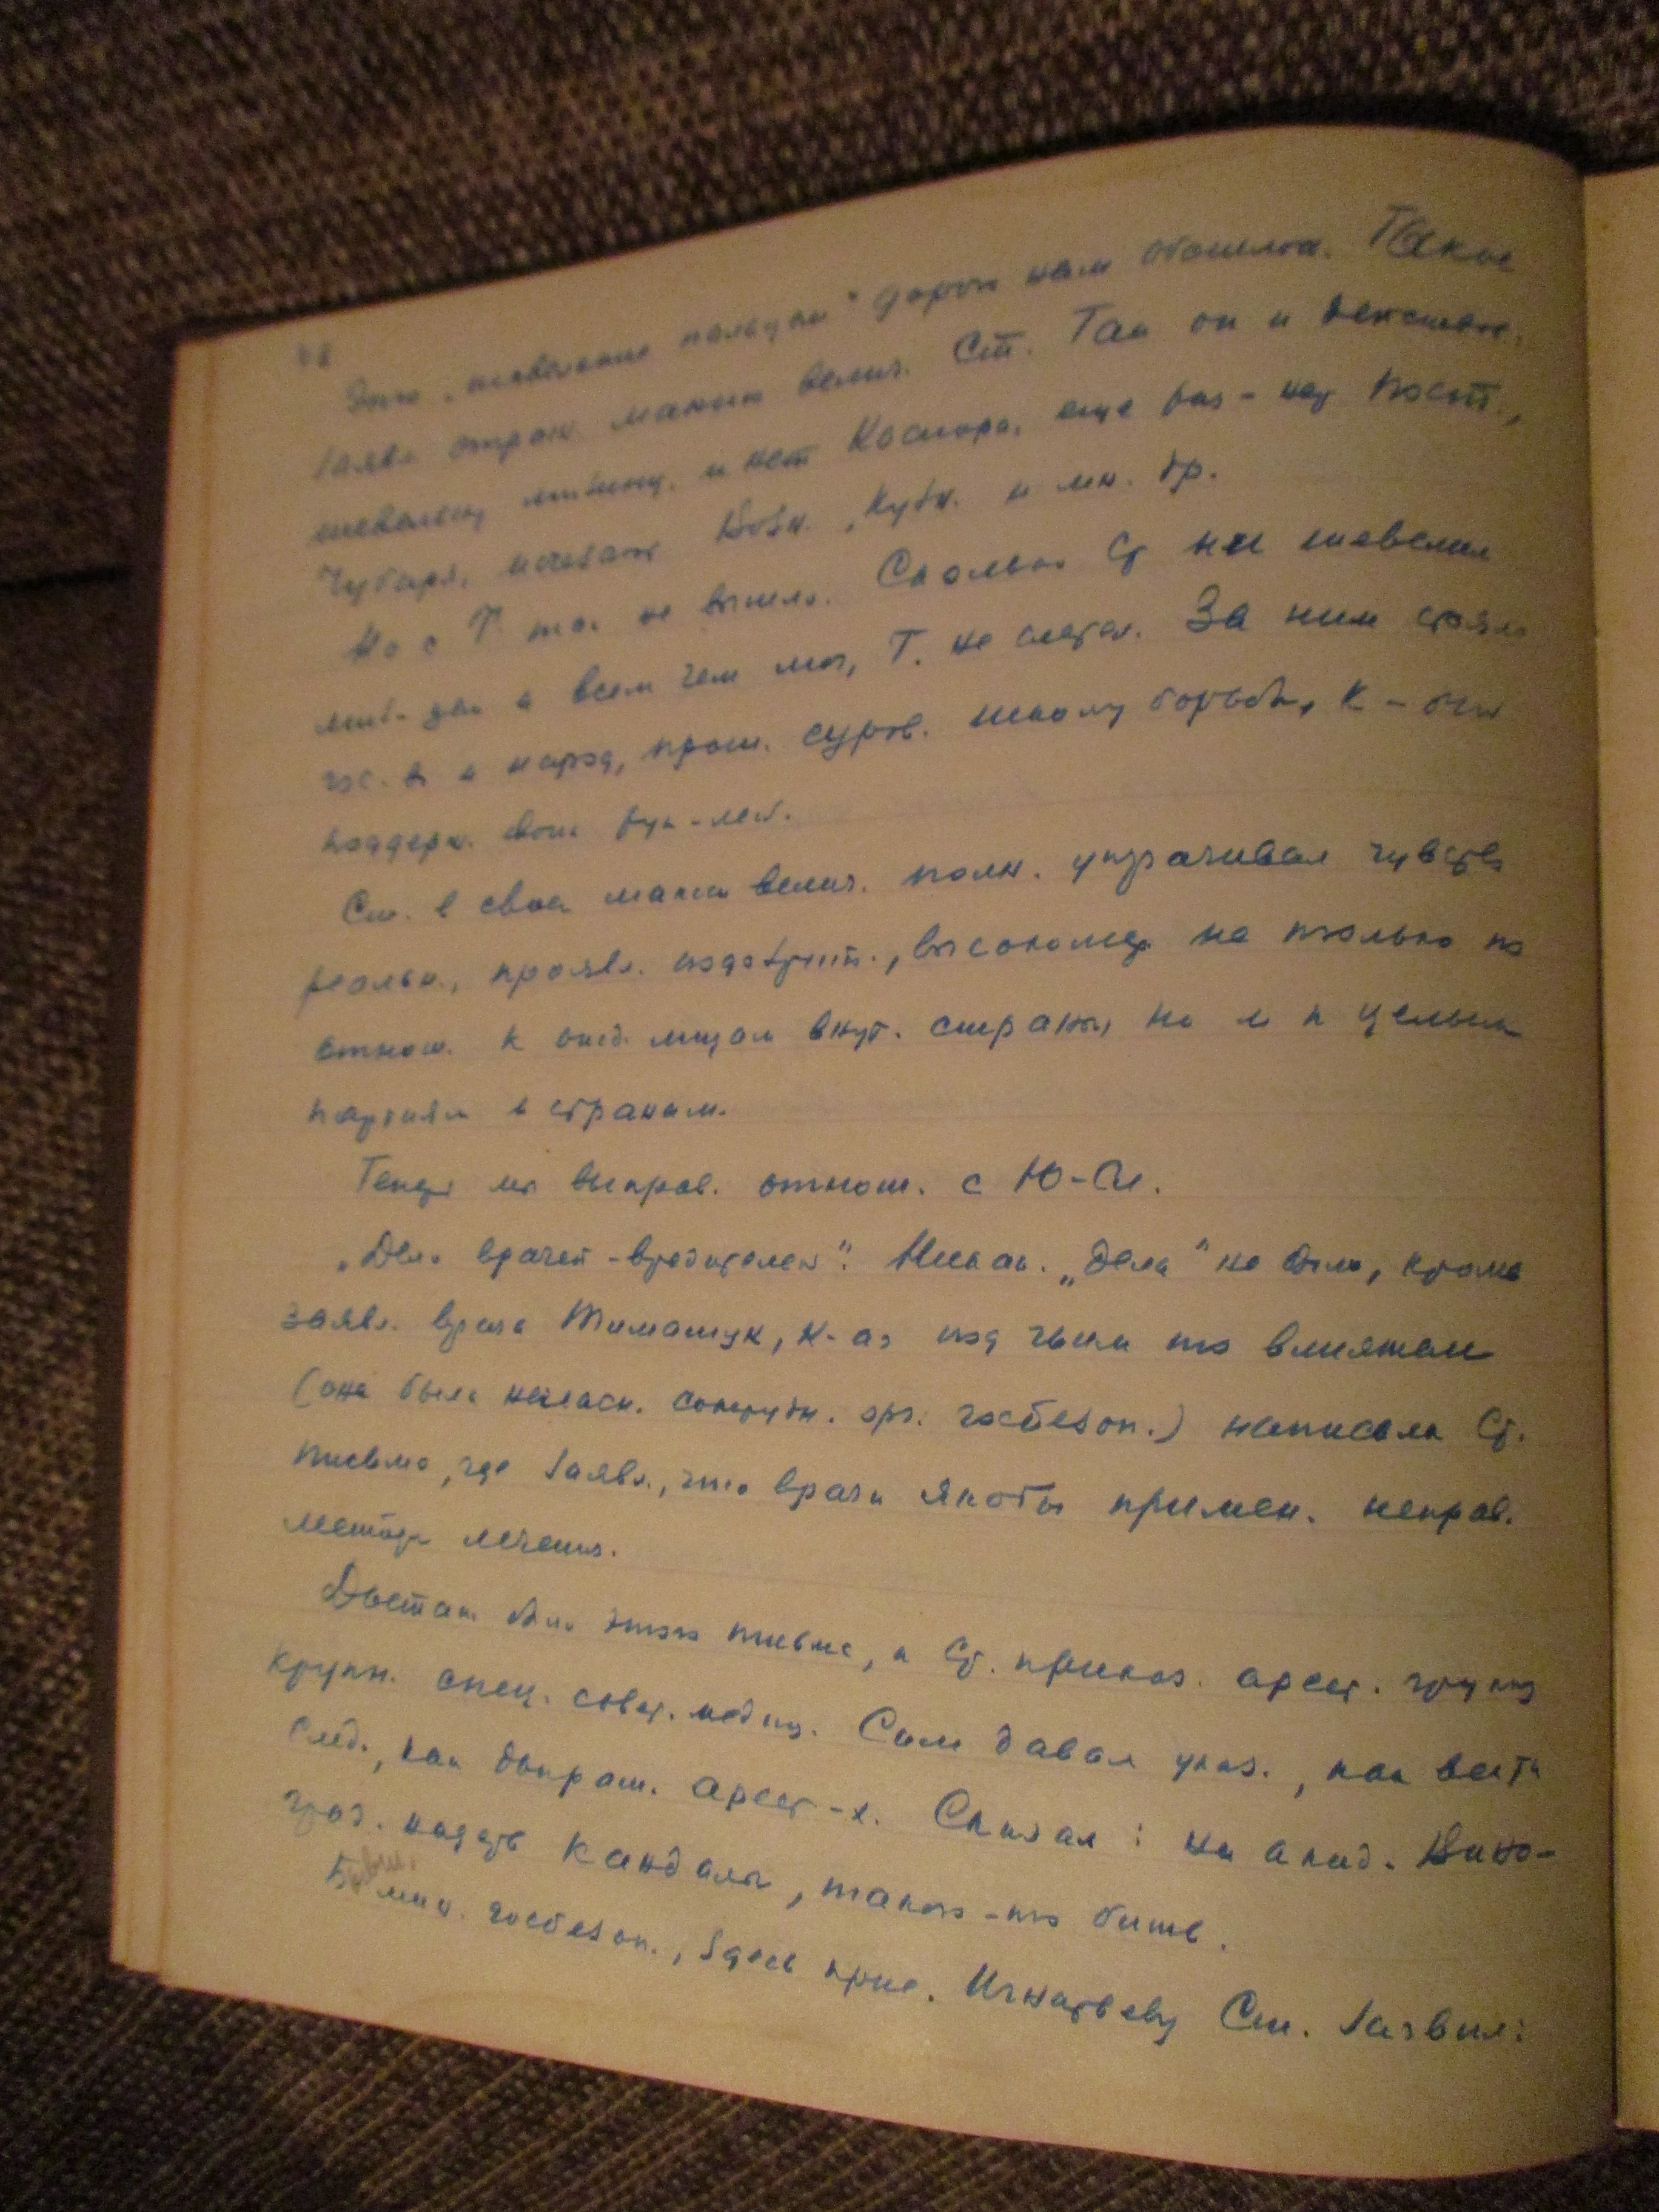 Это „шевеление пальцем" дорого нам обошлось. Такие
заявл. отраж. манию велич. Ст. Так он и действов.
шевельну мизинц. и нет Косиора, еще раз - нету Пост.,
Чубаря, исчезают Возн., Кузн. и мн. др.
Но с Т так не вышло. Сколько Ст ни шевелил
и всем чем мог, Т. не слетел. За ним стояло
гос-во и народ, прош. суров. школу борьбы, к-ый
поддерж. своих рук-лей.
Ст. в своей мании велич. полн. утрачивал чувство
реальн., проявл. подозрит., высокомер. не только по
отнош. к отд. лицам внут. страны, но и к целым
партиям и странам.
Теперь мы выправ. отнош. с Ю-ей.
„Дело врачей-вредителей". Никак. „дела" не было, кроме
заявл. врача Тимашук, к-ая под чьим то влиянием
(она была негласн. сотрудн. орг. госбезоп.) написала Ст.
письмо, где заявл., что врачи якобы примен. неправ.
методы лечения.
Достат. было этого письма, и Ст. приказ. арест. группу
крупн. спец. совет. медиц. Сам давал указ., как вести
след., как допраш. арест-х. Сказал: на акад. Вино-
град. надеть кандалы, такого-то бить.
Бывш. мин. госбезоп., здесь прис. Игнатьеву Ст. заявил: